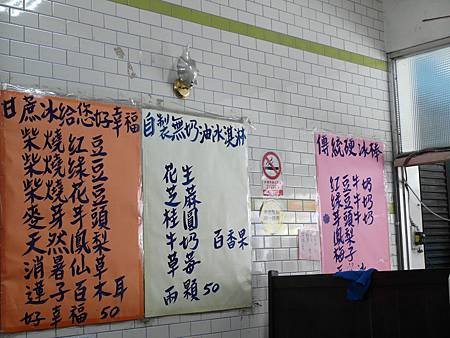 甘蔗冰給您好幸福
柴燒紅豆
柴燒綠豆
柴燒花豆
麥芽芋頭
天然鳳梨
消暑仙草
蓮子百木耳
好幸福50
自製無奶油冰淇淋
花生
芝麻
桂圓
牛奶 百香果
草莓
兩顆50
傳統硬冰棒
紅豆牛奶
綠豆牛奶
芋頭牛奶
鳳梨
梅子